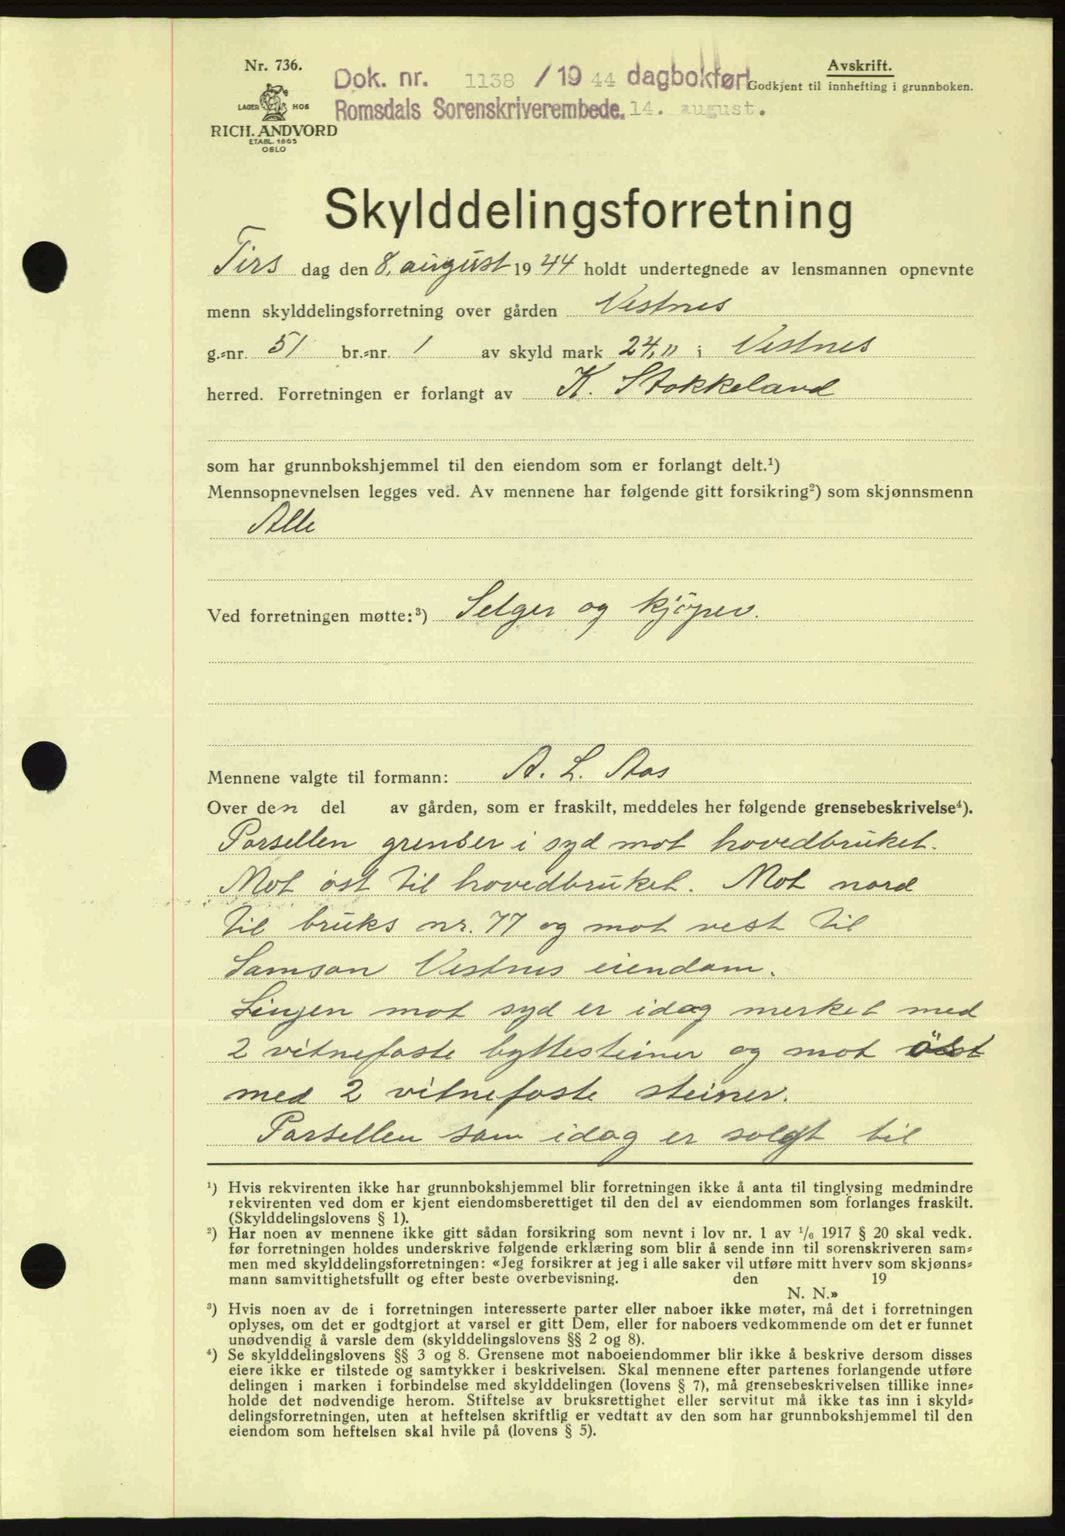 Nr. 736.
LAGER HOS
RICH. ANDVORD
ETABL. 1865
OSLO
Dok. nr. 1138 / 19 44 dagbokført
Romsdals Sorenskriverembede. 14. august.
Avskrift.
Godkjent til innhefting i grunnboken.
Skylddelingsforretning
Tirs dag den 8. august 19 44 holdt undertegnede av lensmannen opnevnte
menn skylddelingsforretning over gården Vestnes
g.=nr. 51 br.=nr. 1 av skyld mark 24,11 i Vestnes
herred. Forretningen er forlangt av K. Stokkeland
som har grunnbokshjemmel til den eiendom som er forlangt delt.¹)
Mennsopnevnelsen legges ved. Av mennene har følgende gitt forsikring²) som skjønnsmenn
Alle
Ved forretningen møtte:³) Selger og kjöper.
Mennene valgte til formann: A. L. Aas
Over den del av gården, som er fraskilt, meddeles her følgende grensebeskrivelse⁴).
Parsellen grenser i syd mot hovedbruket.
Mot öst til hovedbruket. Mot nord
til bruks nr. 77 og mot vest til
Samson Vestnes eiendom.
Linjen mot syd er idag merket med
2 vitnefaste byttesteiner og mot öst
med 2 vitnefaste steiner.
Parsellen som idag er solgt til
¹) Hvis rekvirenten ikke har grunnbokshjemmel blir forretningen ikke å anta til tinglysing medmindre
rekvirenten ved dom er kjent eiendomsberettiget til den del av eiendommen som forlanges fraskilt.
(Skylddelingslovens § 1).
²) Har noen av mennene ikke gitt sådan forsikring som nevnt i lov nr. 1 av ¹/₆ 1917 § 20 skal vedk.
før forretningen holdes underskrive følgende erklæring som blir å sende inn til sorenskriveren sam=
men med skylddelingsforretningen: «Jeg forsikrer at jeg i alle saker vil utføre mitt hverv som skjønns=
mann samvittighetsfullt og efter beste overbevisning. den 19
N. N.»
³) Hvis noen av de i forretningen interesserte parter eller naboer ikke møter, må det i forretningen
oplyses, om det er godtgjort at varsel er gitt Dem, eller for naboers vedkommende om det er funnet
unødvendig å varsle dem (skylddelingslovens §§ 2 og 8).
⁴) Se skylddelingslovens §§ 3 og 8. Grensene mot naboeiendommer blir ikke å beskrive dersom disses
eiere ikke er tilstede og samtykker i beskrivelsen. Skal mennene efter partenes forlangende utføre
delingen i marken i forbindelse med skylddelingen (lovens § 7), må grensebeskrivelsen tillike inne=
holde det nødvendige herom. Stiftelse av bruksrettighet eller servitut må ikke tas inn i skyld=
delingsforretningen, uten at heftelsen skriftlig er vedtatt av den som har grunnbokshjemmel til den
eiendom som heftelsen skal hvile på (lovens § 5).